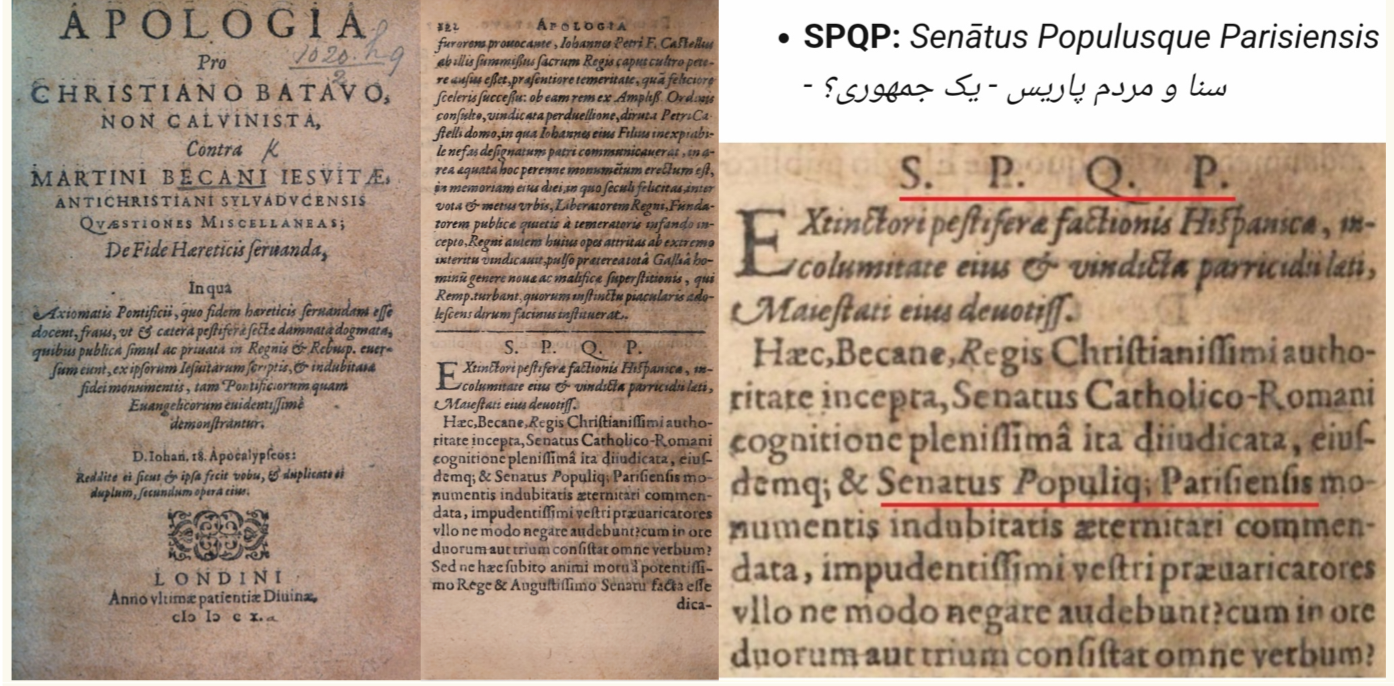 APOLOGIA
Pro
1020. h 9
2
CHRISTIANO BATAVO,
NON CALVINISTA,
Contra
MARTINI BECANI IESVITÆ,
ANTICHRISTIANI SYLVADVCENSIS
QVÆSTIONES MISCELLANEAS;
De Fide Hæreticis ſeruanda,
In qua
Axiomatis Pontificii, quo fidem hæreticis ſeruandam eſſe
docent, fraus, vt & cætera peſtiferæ ſectæ damnata dogmata,
quibus publica ſimul ac priuata in Regnis & Rebusp. euer-
ſum eunt, ex ipſorum Ieſuitarum ſcriptis, & indubitatis
fidei monumentis, tam Pontificiorum quam
Euangelicorum euidentiſſimè
demonſtrantur.
D. Iohan. 18. Apocalypſeos:
Reddite ei ſicut & ipſa fecit vobis, & duplicate ei
duplum, ſecundum opera eius.
LONDINI
Anno vltimæ patientiæ Diuinæ,
APOLOGIA
furorem prouocante, Iohannes Petri F. Caſtellus
ab illis ſummiſſus ſacrum Regis caput cultro pete-
re auſus eſſet, præſentiore temeritate, quā feliciore
ſceleris ſucceſſu: ob eam rem ex Ampliſſ. Ordinis
conſulto, vindicata perduellione, diruta Petri Ca-
ſtelli domo, in qua Iohannes eius Filius inexpiabi-
le nefas deſignatum patri communicauerat, in a-
rea æquata hoc perenne monumētum erectum eſt,
in memoriam eius diei, in quo ſeculi felicitas, inter
vota & metus vrbis, Liberatorem Regni, Funda-
torem publicæ quietis à temeratoris infando in-
cepto, Regni autem huius opes attritas ab extremo
interitu vindicauit, pulſo prætereà totâ Galliâ ho-
minū genere nouæ ac maleficæ ſuperſtitionis, qui
Remp. turbant, quorum inſtinctu piacularis ado-
leſcens dirum facinus inſtituerat.
S. P. Q. P.
EXtinctori peſtiferæ factionis Hiſpanicæ, in-
columitate eius & vindicta parricidii læti,
Maieſtati eius deuotiſſ.
Hæc, Becane, Regis Chriſtianiſſimi autho-
ritate incepta, Senatus Catholico-Romani
cognitione pleniſſimâ ita diiudicata, eiuſ-
demq; & Senatus Populiq; Pariſienſis mo-
numentis indubitatis æternitati commen-
data, impudentiſſimi veſtri præuaricatores
vllo ne modo negare audebunt? cum in ore
duorum aut trium conſiſtat omne verbum?
Sed ne hæc ſubito animi motu à potentiſſi-
mo Rege & Auguſtiſſimo Senatu facta eſſe
dica-
• SPQP: Senātus Populusque Parisiensis
سنا و مردم پاریس - یک جمهوری؟ -
S. P. Q. P.
EXtinctori peſtiferæ factionis Hiſpanicæ, in-
columitate eius & vindicta parricidii læti,
Maieſtati eius deuotiſſ.
Hæc, Becane, Regis Chriſtianiſſimi autho-
ritate incepta, Senatus Catholico-Romani
cognitione pleniſſimâ ita diiudicata, eiuſ-
demq; & Senatus Populiq; Pariſienſis mo-
numentis indubitatis æternitati commen-
data, impudentiſſimi veſtri præuaricatores
vllo ne modo negare audebunt? cum in ore
duorum aut trium conſiſtat omne verbum?